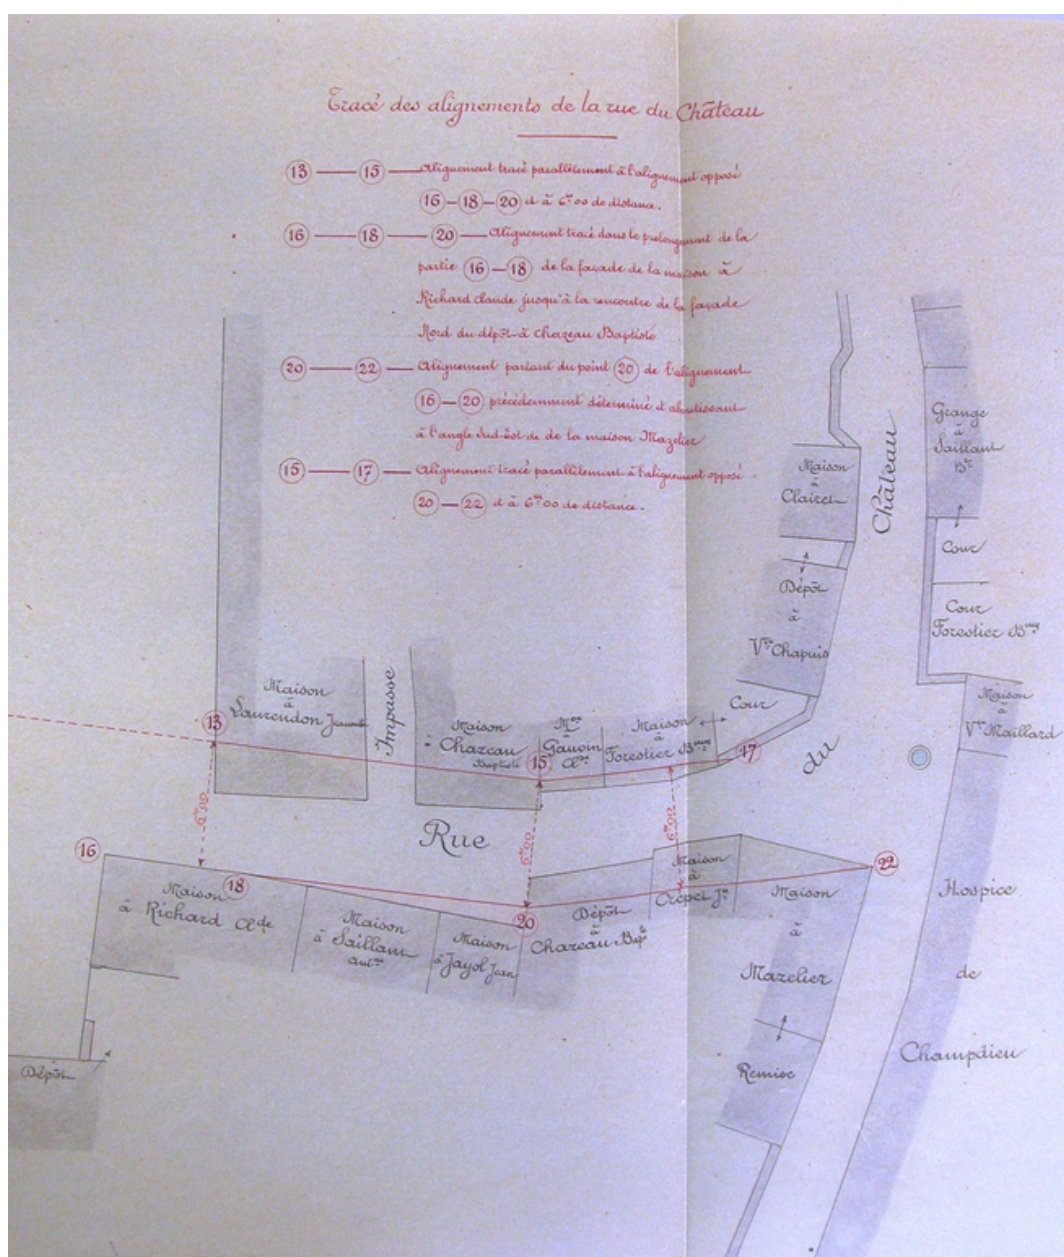 Tracé des alignements de la rue du Château
13 — 15 — Alignement tracé parallèlement à l'alignement opposé
16 — 18 — 20 et à 6m00 de distance.
16 — 18 — 20 — Alignement tracé dans le prolongement de la
partie 16 — 18 de la façade de la maison à
Richard Claude jusqu'à la rencontre de la façade
Nord du dépôt à Chazeau Baptiste
20 — 22 — Alignement partant du point 20 de l'alignement
16 — 20 précédemment déterminé et aboutissant
à l'angle Sud-Est de de la maison Mazelier
15 — 17 — Alignement tracé parallèlement à l'alignement opposé
20 — 22 et à 6m00 de distance.
Grange
à
Saillant
Bte
Maison
à
Clairet
Château
Cour
Dépôt
à
Vve Chapuis
Cour
Forestier
Maison
à
Laurendon
Impasse
Maison
à Chazeau
Baptiste
Mon
à
Gauvin
Cde
Maison
à
Forestier
Cour
Maison
à
Vve Maillard
13
15
17
du
6m00
6m00
6m00
Rue
16
18
20
22
Maison
à Richard Clde
Maison
à Saillant
Antne
Maison
à Jayol Jean
Dépôt
à
Chazeau Bapte
Maison
à
Crépet Jn
Maison
à
Mazelier
Hospice
de
Champdieu
Remise
Dépôt